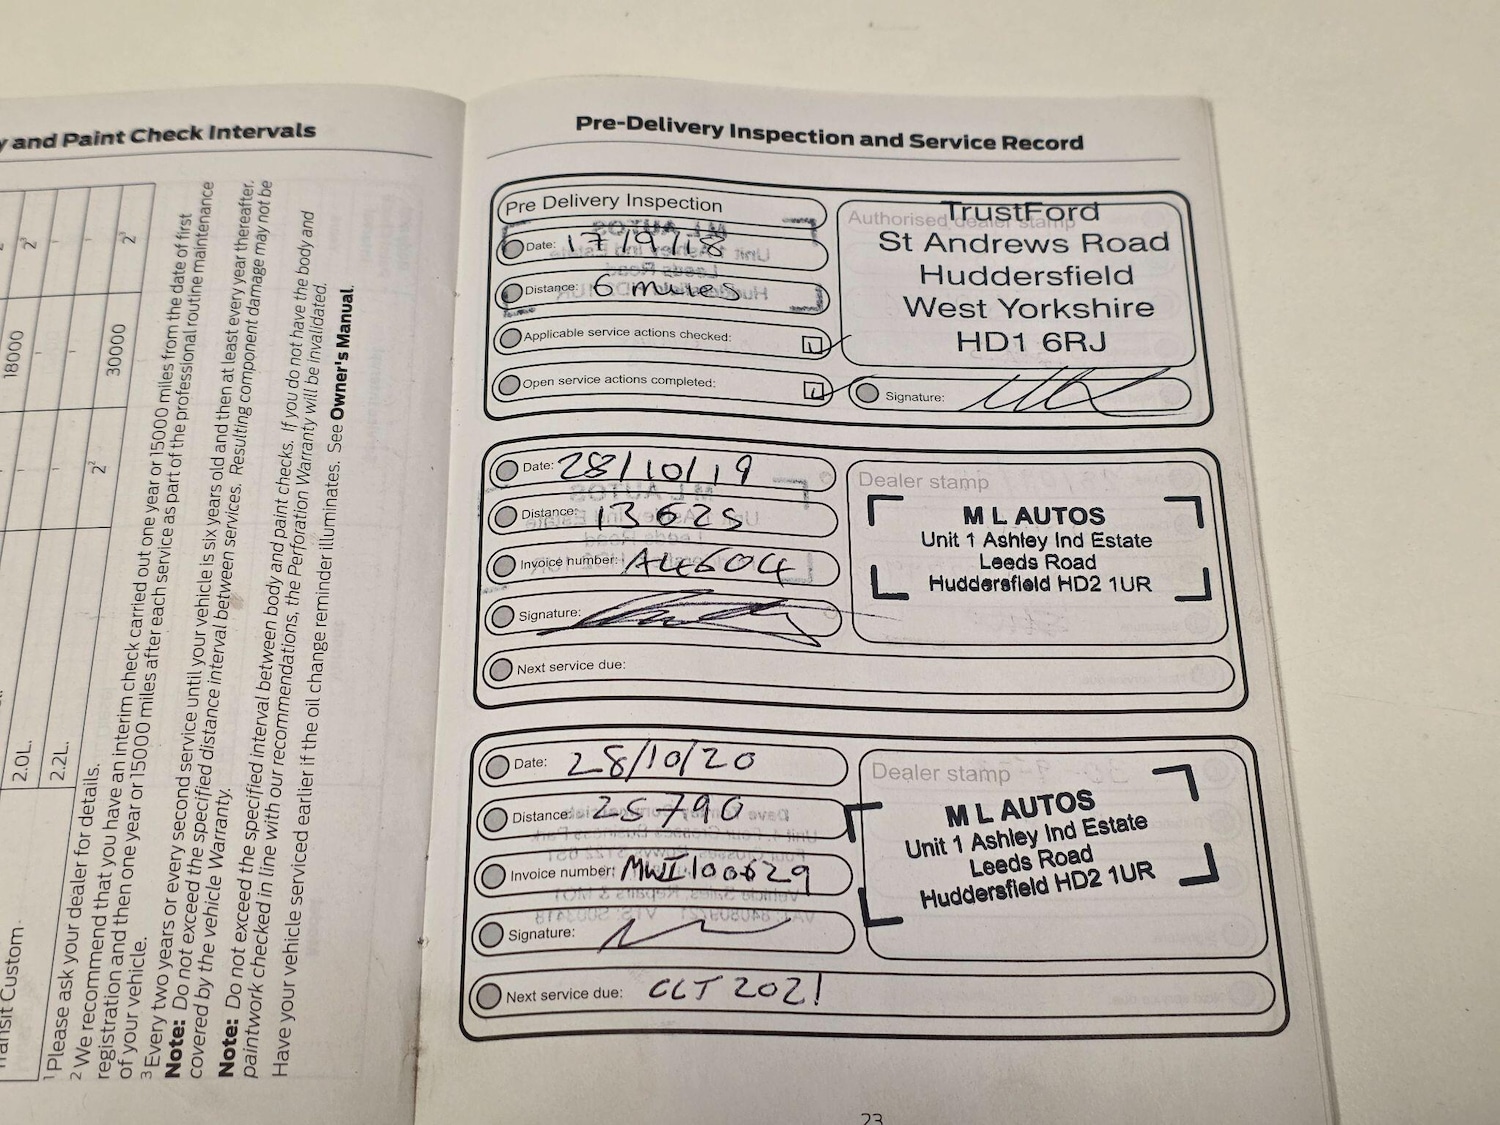 y and Paint Check Intervals
2³
18000
2³
30000
2²
ransit Custom.
2.0L.
2.2L.
¹ Please ask your dealer for details.
² We recommend that you have an interim check carried out one year or 1500 miles from the date of first
registration and then one year or 15000 miles after each service as part of the professional routine maintenance
of your vehicle.
³ Every two years or every second service until your vehicle is six years old and then at least every year thereafter.
Note: Do not exceed the specified distance interval between services. Resulting component damage may not be
covered by the vehicle Warranty.
Note: Do not exceed the specified interval between body and paint checks. If you do not have the body and
paintwork checked in line with our recommendations, the Perforation Warranty will be invalidated.
Have your vehicle serviced earlier if the oil change reminder illuminates. See Owner's Manual.
Pre-Delivery Inspection and Service Record
Pre Delivery Inspection
Date: 17/9/18
Distance: 6 miles
Applicable service actions checked:
Open service actions completed:
Authorised dealer stamp
TrustFord
St Andrews Road
Huddersfield
West Yorkshire
HD1 6RJ
Signature:
Date: 28/10/19
Distance: 13625
Invoice number:
Signature:
Next service due:
Dealer stamp
M L AUTOS
Unit 1 Ashley Ind Estate
Leeds Road
Huddersfield HD2 1UR
Date: 28/10/20
Distance: 25790
Invoice number: MWI100629
Signature:
Next service due: OCT 2021
Dealer stamp
M L AUTOS
Unit 1 Ashley Ind Estate
Leeds Road
Huddersfield HD2 1UR
23